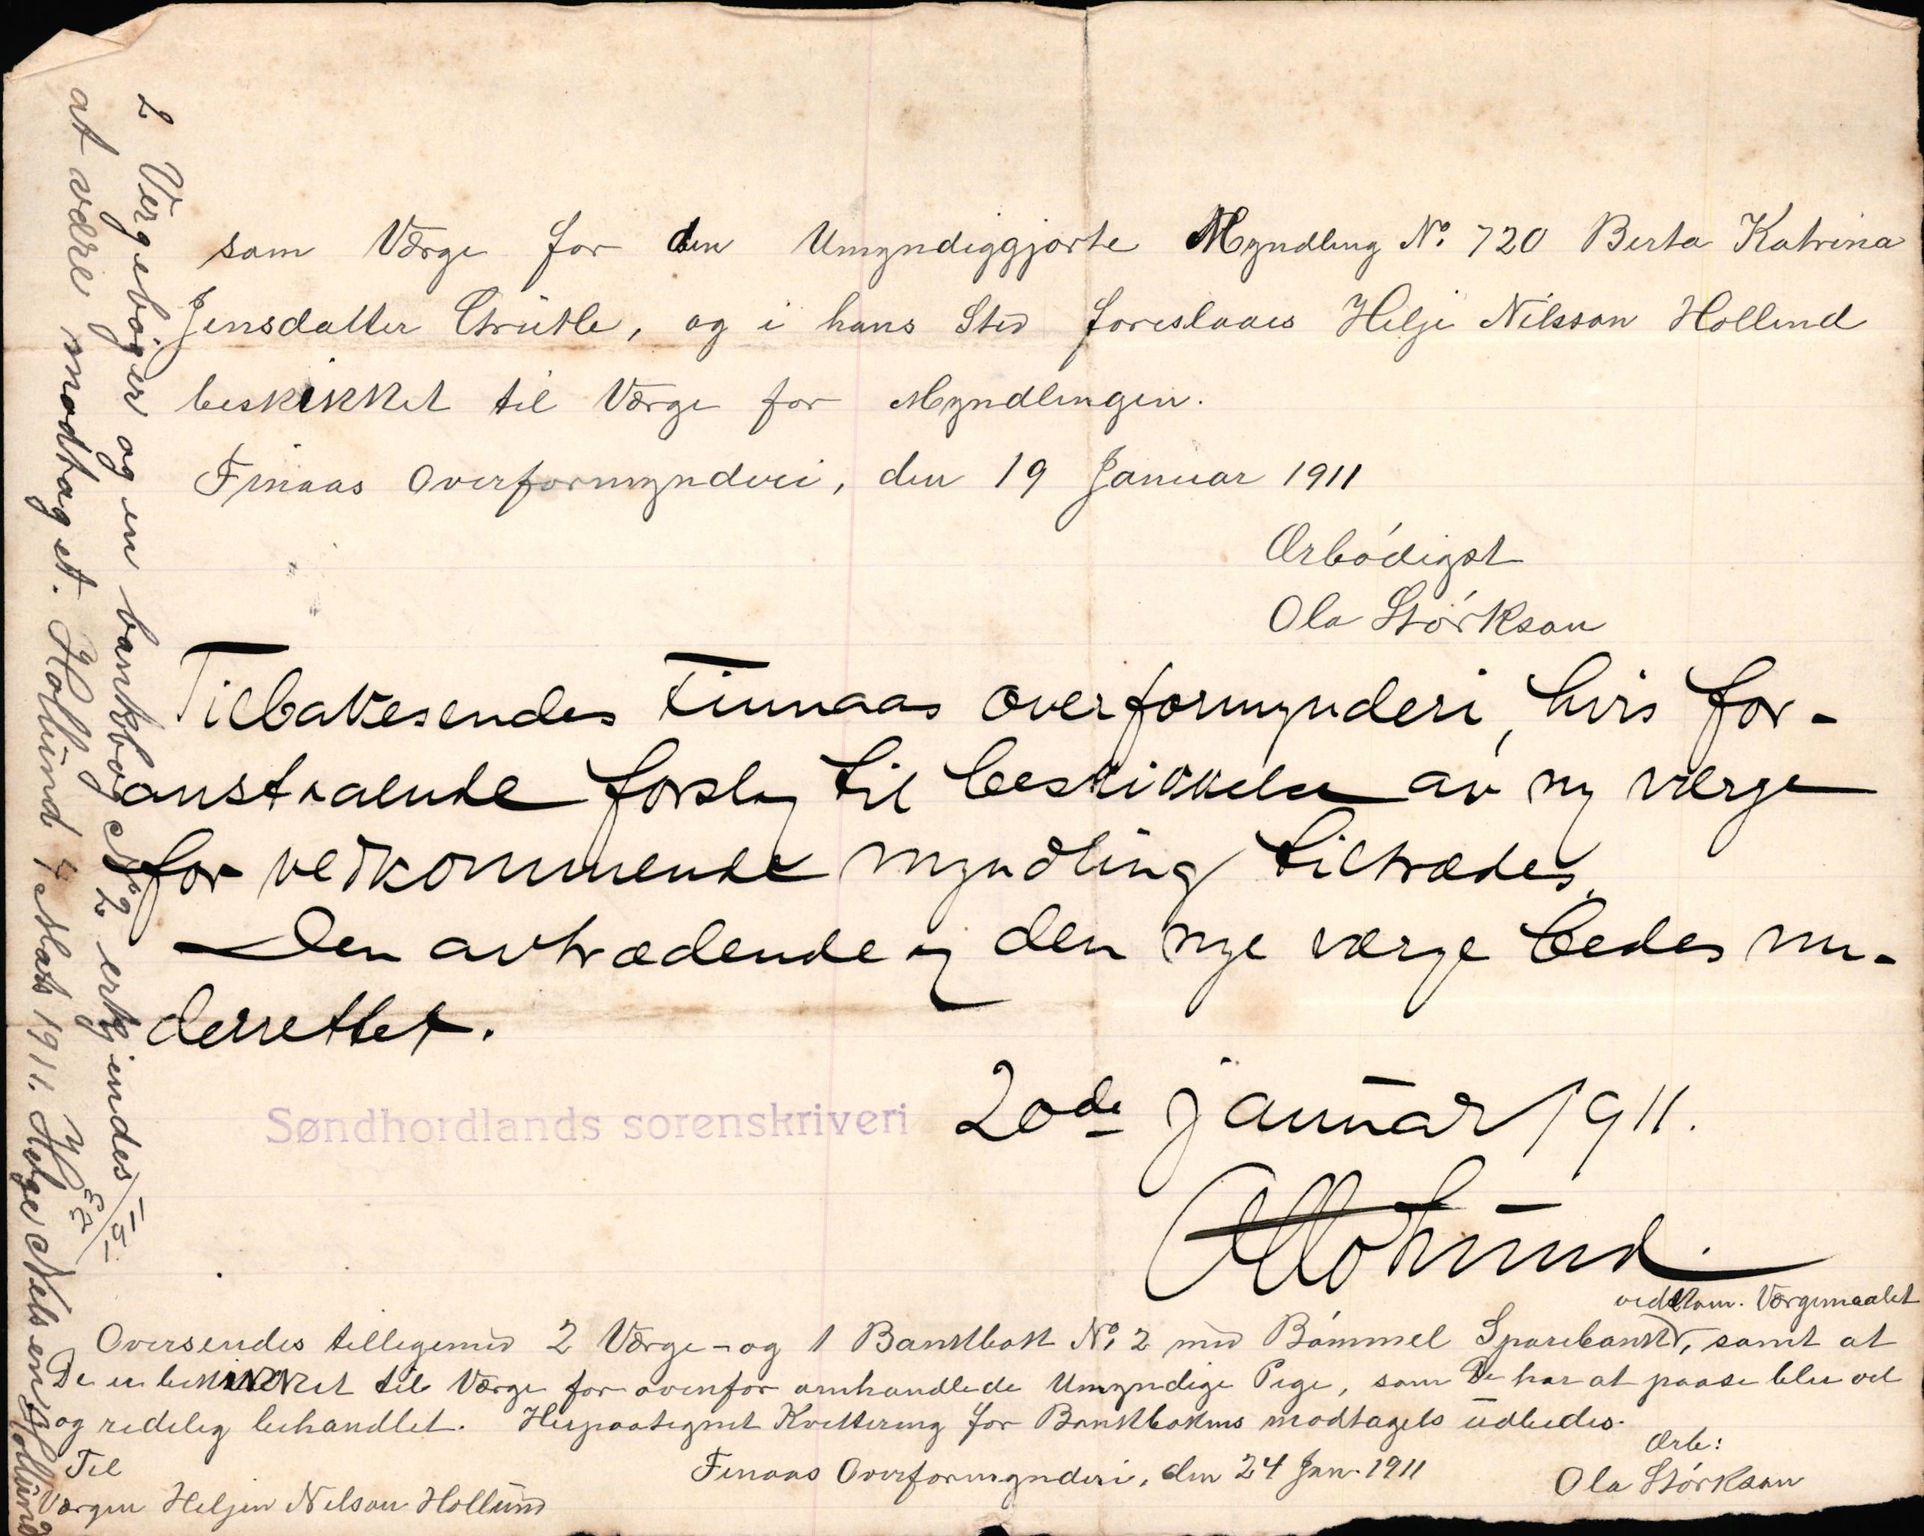 som Værge for den Umyndiggjorte Myndling No. 720 Berta Katrina
Jensdatter Grutle, og i hans Sted foreslaaes Helje Nilsson Hollund
beskikket til Værge for Myndlingen.
Finaas Overformynderi, den 19 Januar 1911
Ærbödigst
Ola Störkson
Tilbakesendes Finnaas overformynderi, hvis for-
anstaaende forslag til beskikkelse av ny værge
for vedkommende myndling tiltrædes.
Den avtrædende og den nye værge bedes un-
derrettet.
Søndhordlands sorenskriveri 20de januar 1911.
vedkom. Værgemaalet
Oversendes tillegemed 2 Værge- og 1 Bankbok No. 2 med Bömmel Sparebank, samt at
De er beskikket til Værge for ovenfor omhandlede Umyndige Pige, som De har at paase blir vel
og redelig behandlet. Herpaategnet Kvittering for Bankbokens modtagels udbedes.
Finaas Overformynderi, den 24 Jan. 1911
Ærb:
Ola Störkson
Til
Værgen Heljen Nilson Hollund
2 Vergebøger og en bankbog No 2 erkjendes
at være modtaget. Hollund 7 Mars 1911. Helge Nelsen Hollund